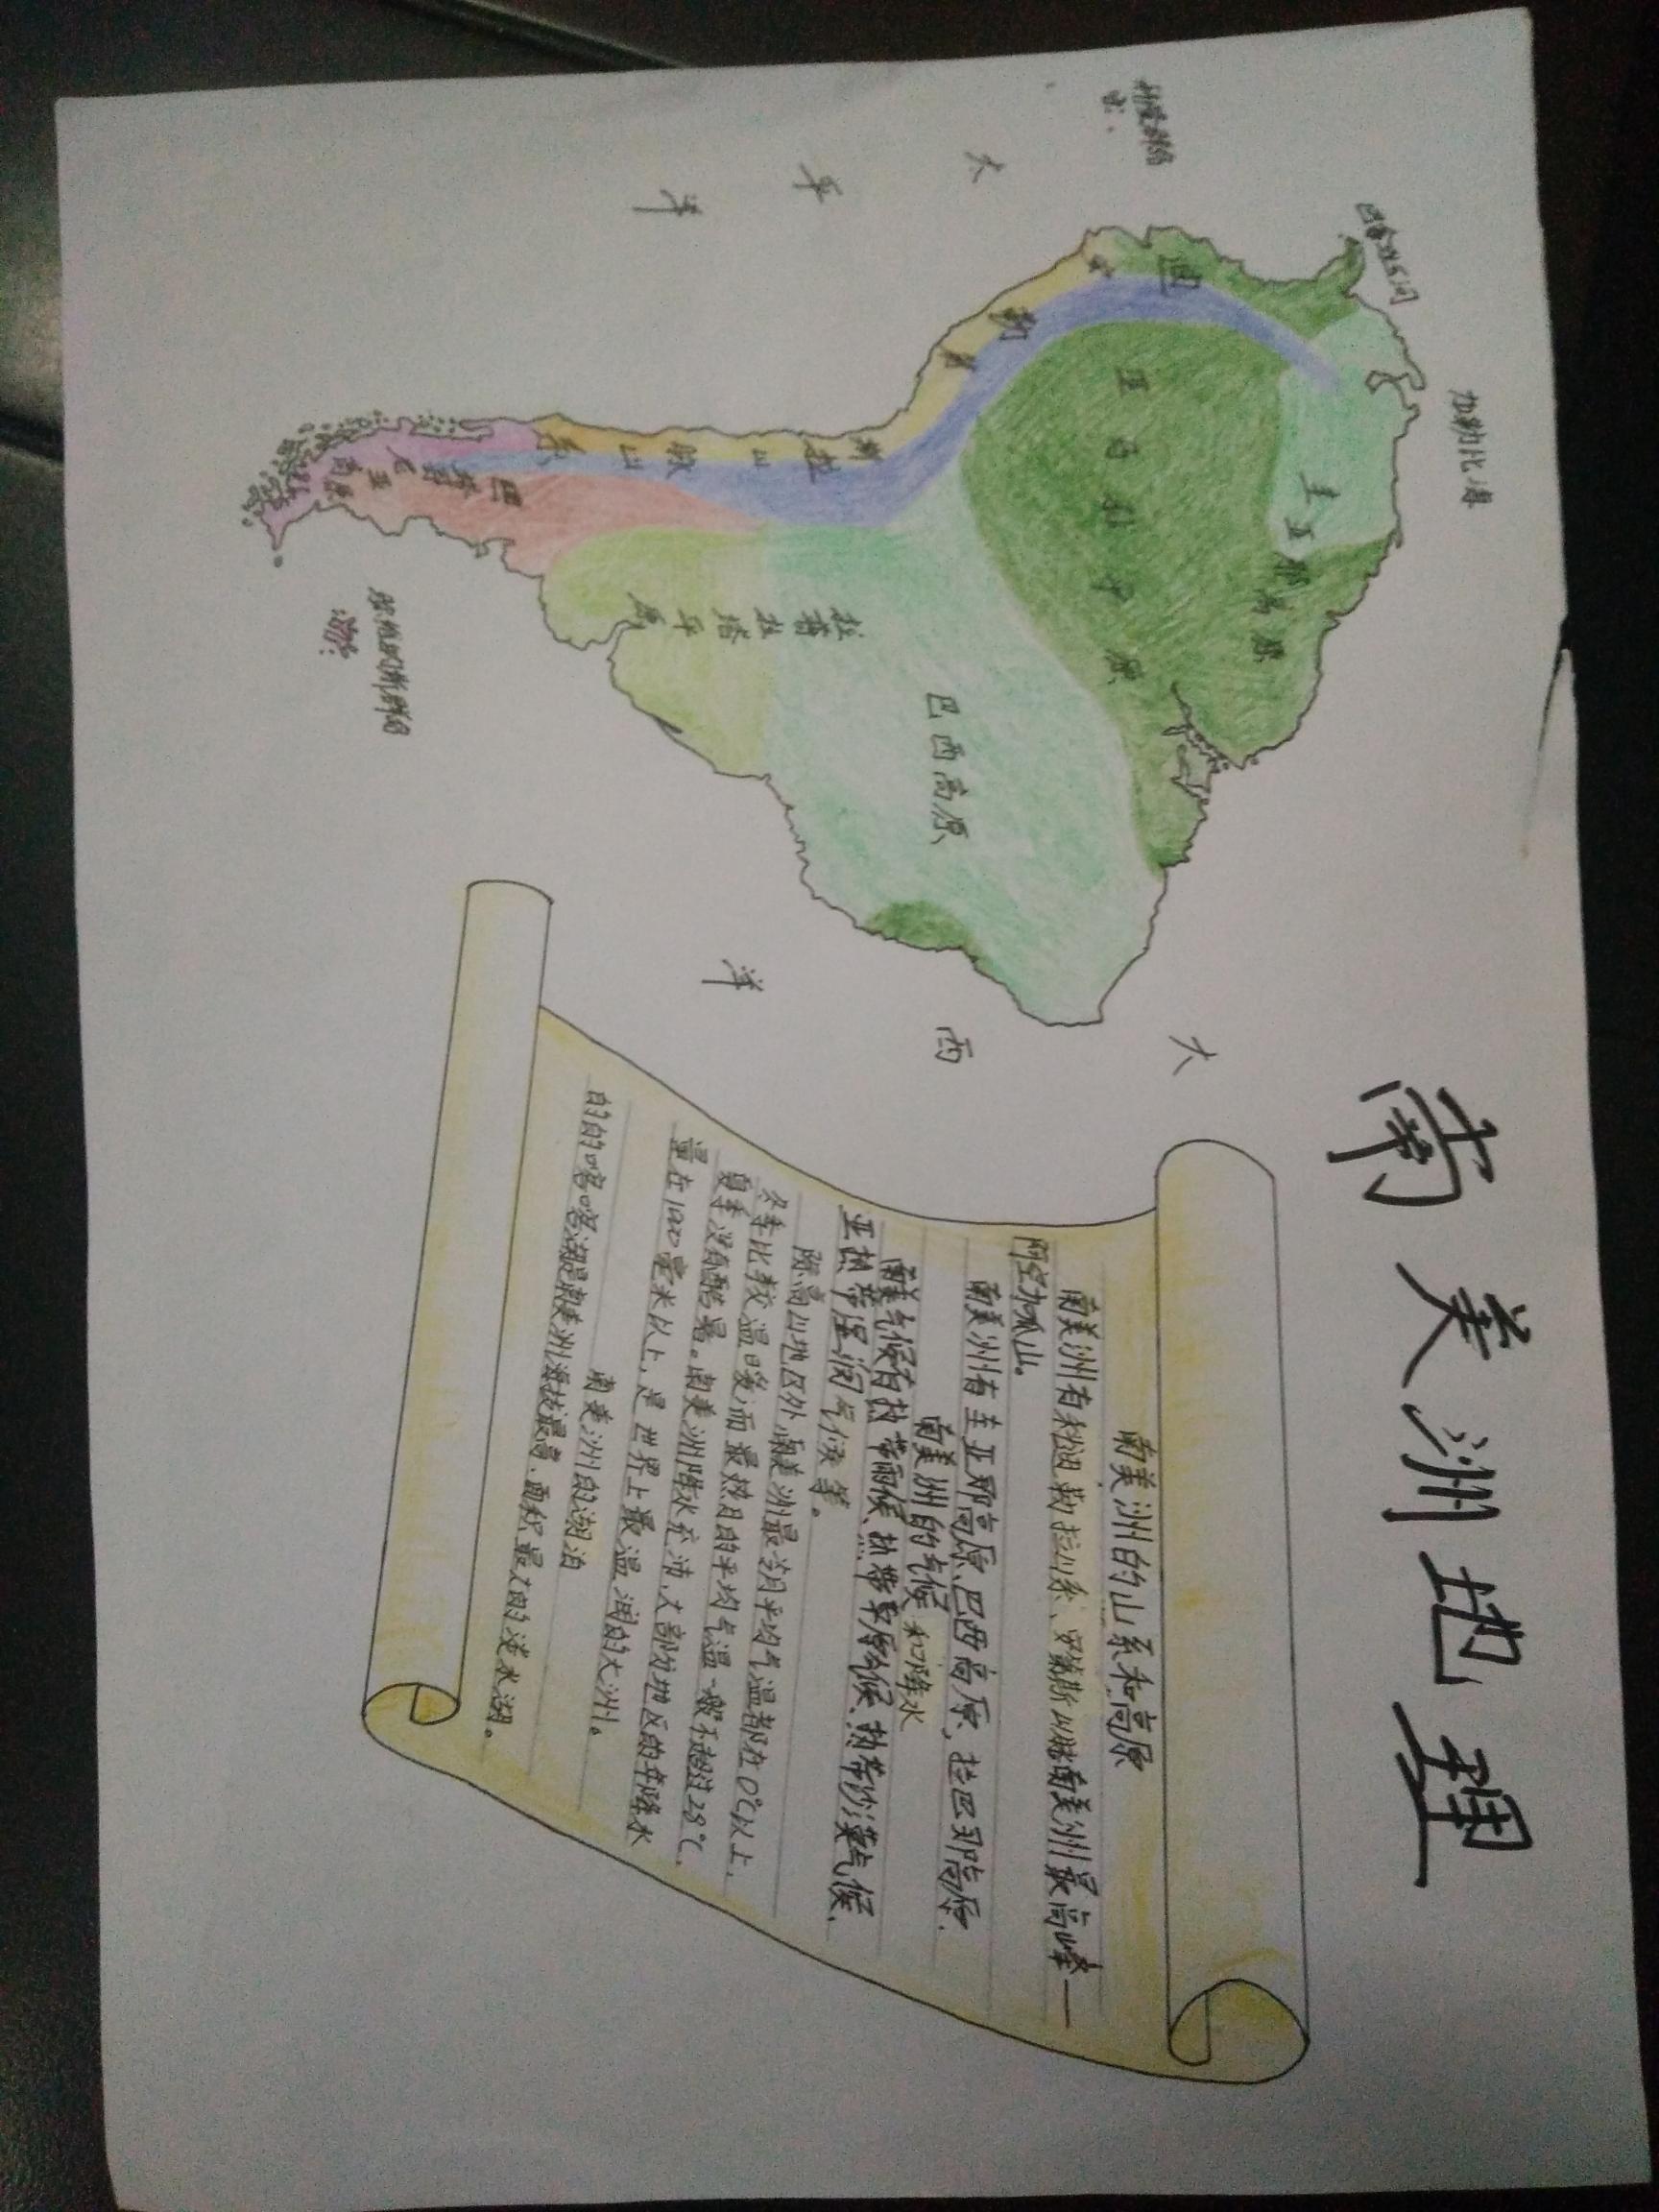 南美洲地理
加勒比海
大
平
洋
圭亚那高原
亚马孙平原
巴西高原
拉普拉塔平原
大
西
洋
南美洲的山系和高原
南美洲有科迪勒拉山系、安第斯山脉南美洲最高峰——
阿空加瓜山。
南美洲有圭亚那高原、巴西高原、
南美洲的气候和降水
南美气候有热带雨候、热带草原气候、热带沙漠气候、
亚热带湿润气候等。
除高山地区外南美洲最冷月平均气温都在0℃以上,
冬季比较温暖而最热月的平均气温一般不超过28℃,
夏季没有酷暑。南美洲降水充沛,大部份地区的年降水
量在1000毫米以上,是世界上最温润的大洲。
南美洲的湖泊
的的喀喀湖是南美洲海拔最高、面积最大的淡水湖。